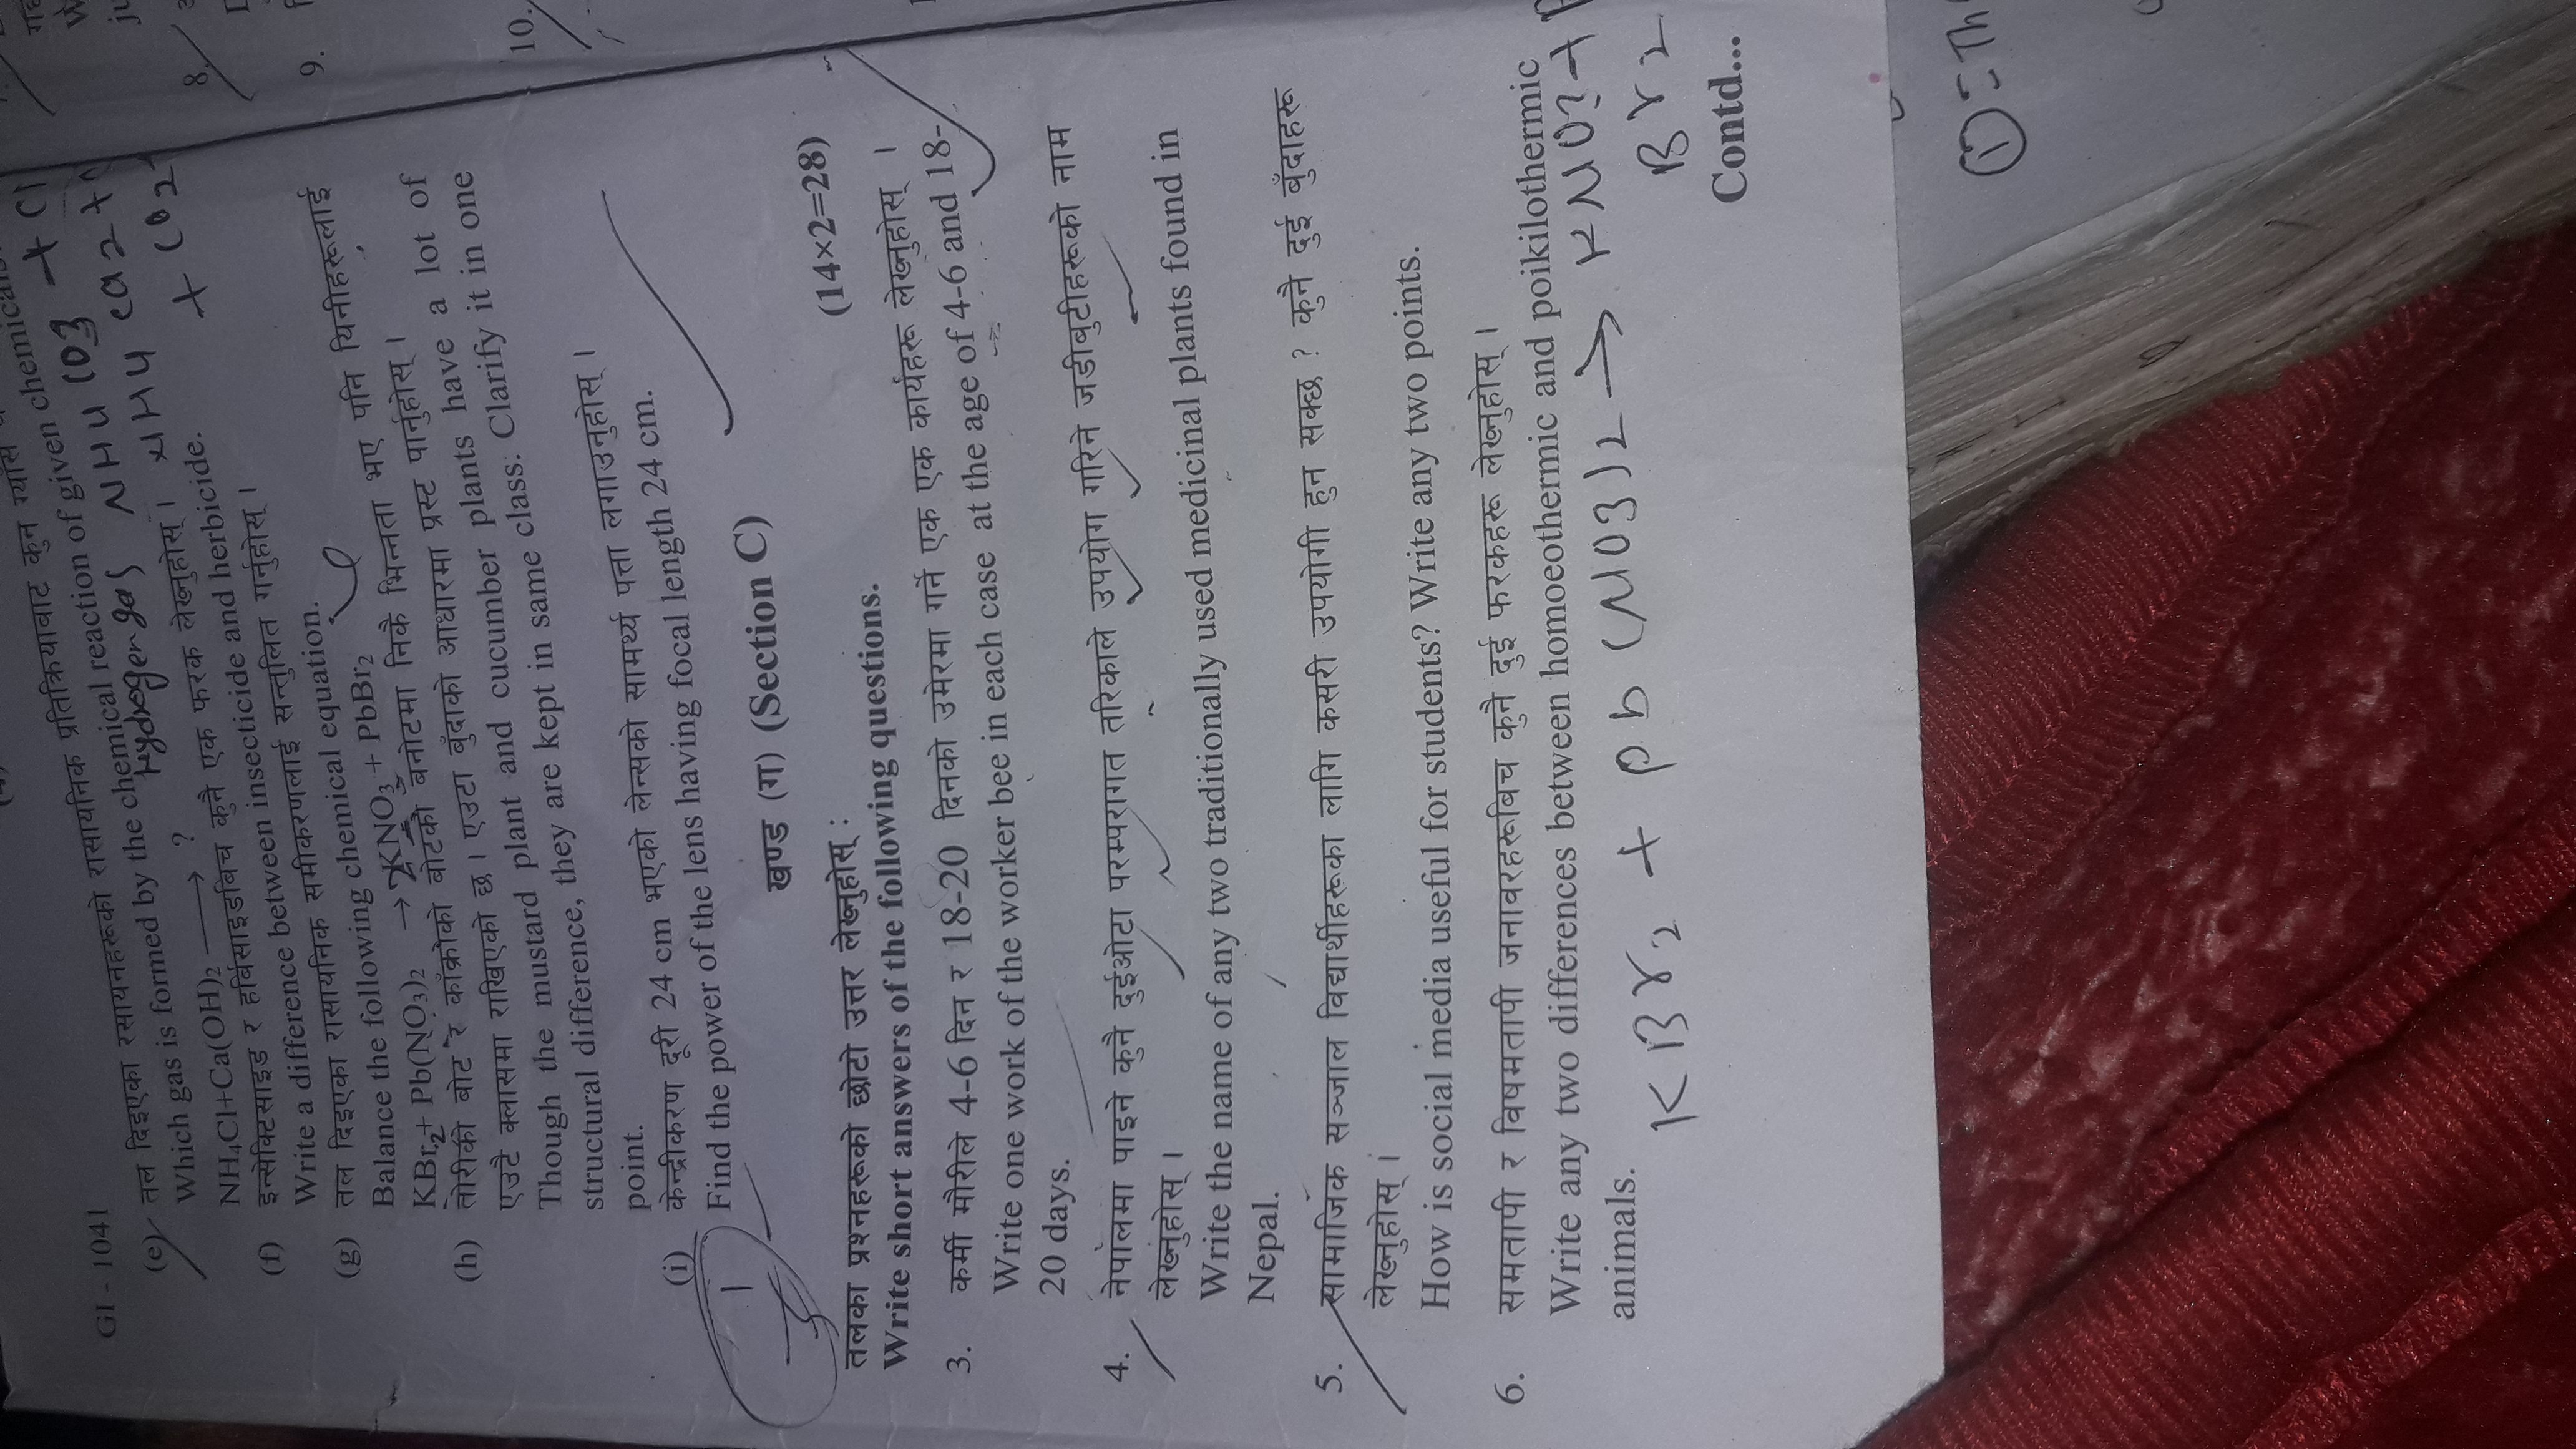 GI - 1041
(e) तल दिइएका रसायनहरूको रासायनिक प्रतिक्रियाबाट कुन ग्याँस
Which gas is formed by the chemical reaction of given chemicals
hydrogen gas NH4 CO3 + Cl
NH₄Cl+Ca(OH)₂ ⟶ ?
NH4 Ca2 +
+ CO2
(f) इन्सेक्टिसाइड र हर्बिसाइडबिच कुनै एक फरक लेख्नुहोस् ।
Write a difference between insecticide and herbicide.
(g) तल दिइएका रासायनिक समीकरणलाई सन्तुलित गर्नुहोस् ।
Balance the following chemical equation.
KBr₂+ Pb(NO₃)₂ → 2KNO₃ + PbBr₂
(h) तोरीको बोट र काँक्रोको बोटको बनोटमा निकै भिन्नता भए पनि यिनीहरूलाई
एउटै क्लासमा राखिएको छ । एउटा बुँदाको आधारमा प्रस्ट पार्नुहोस् ।
Though the mustard plant and cucumber plants have a lot of
structural difference, they are kept in same class. Clarify it in one
point.
(i) केन्द्रीकरण दूरी 24 cm भएको लेन्सको सामर्थ्य पत्ता लगाउनुहोस् ।
Find the power of the lens having focal length 24 cm.
खण्ड (ग) (Section C)
तलका प्रश्नहरूको छोटो उत्तर लेख्नुहोस् : (14×2=28)
Write short answers of the following questions.
3. कर्मी मौरीले 4-6 दिन र 18-20 दिनको उमेरमा गर्ने एक एक कार्यहरू लेख्नुहोस् ।
Write one work of the worker bee in each case at the age of 4-6 and 18-
20 days.
4. नेपालमा पाइने कुनै दुईओटा परम्परागत तरिकाले उपयोग गरिने जडीबुटीहरूको नाम
लेख्नुहोस् ।
Write the name of any two traditionally used medicinal plants found in
Nepal.
5. सामाजिक सञ्जाल विद्यार्थीहरूका लागि कसरी उपयोगी हुन सक्छ ? कुनै दुई बुँदाहरू
लेख्नुहोस् ।
How is social media useful for students? Write any two points.
6. समतापी र विषमतापी जनावरहरूबिच कुनै दुई फरकहरू लेख्नुहोस् ।
Write any two differences between homoeothermic and poikilothermic
animals.
KBr₂ + pb (NO3)2 → KNO3 +
Br2
Contd...
8.
9.
10.